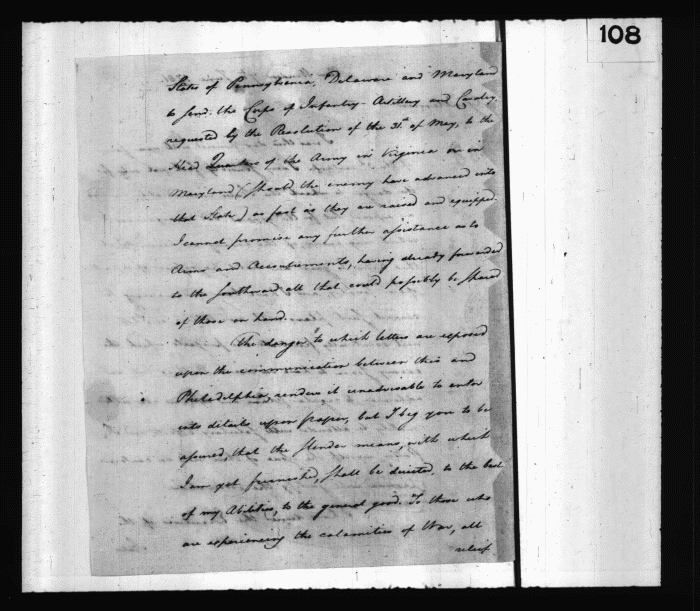 108
States of Pennsylvania, Delaware and Maryland
to send the Corps of Infantry Artillery and Cavalry
requested by the Resolution of the 31st of May, to the
Head Quarters of the Army in Virginia or in
Maryland (should the enemy have advanced into
that State) as fast as they are raised and equipped.
I cannot promise any further assistance as to
Arms and Accoutrements, having already forwarded
to the Southward all that could possibly be spared
of those on hand.
The danger to which letters are exposed
upon the communication between this and
Philadelphia, renders it unadvisable to enter
into details upon paper, but I beg you to be
assured, that the slender means, with which
I am yet furnished, shall be directed, to the best
of my Abilities, to the general good. To those who
are experiencing the calamities of War, all
releif